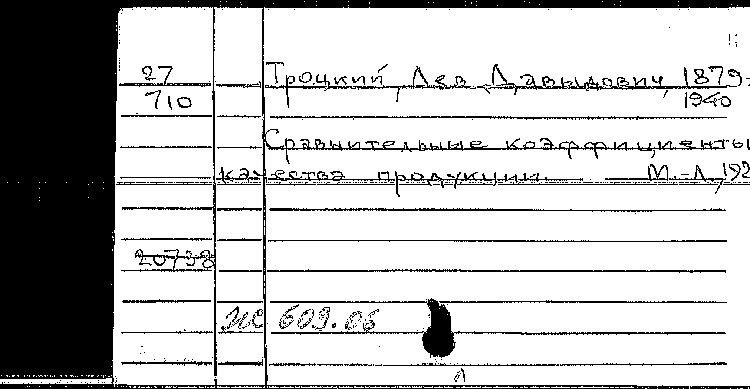 27
710
Троцкий, Лев Давыдович, 1879-
1940
Сравнительные коэффициенты
качества продукции. М.-Л., 192
20738
ИС 609.06
л